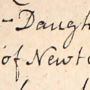 - Daugh
of Newt